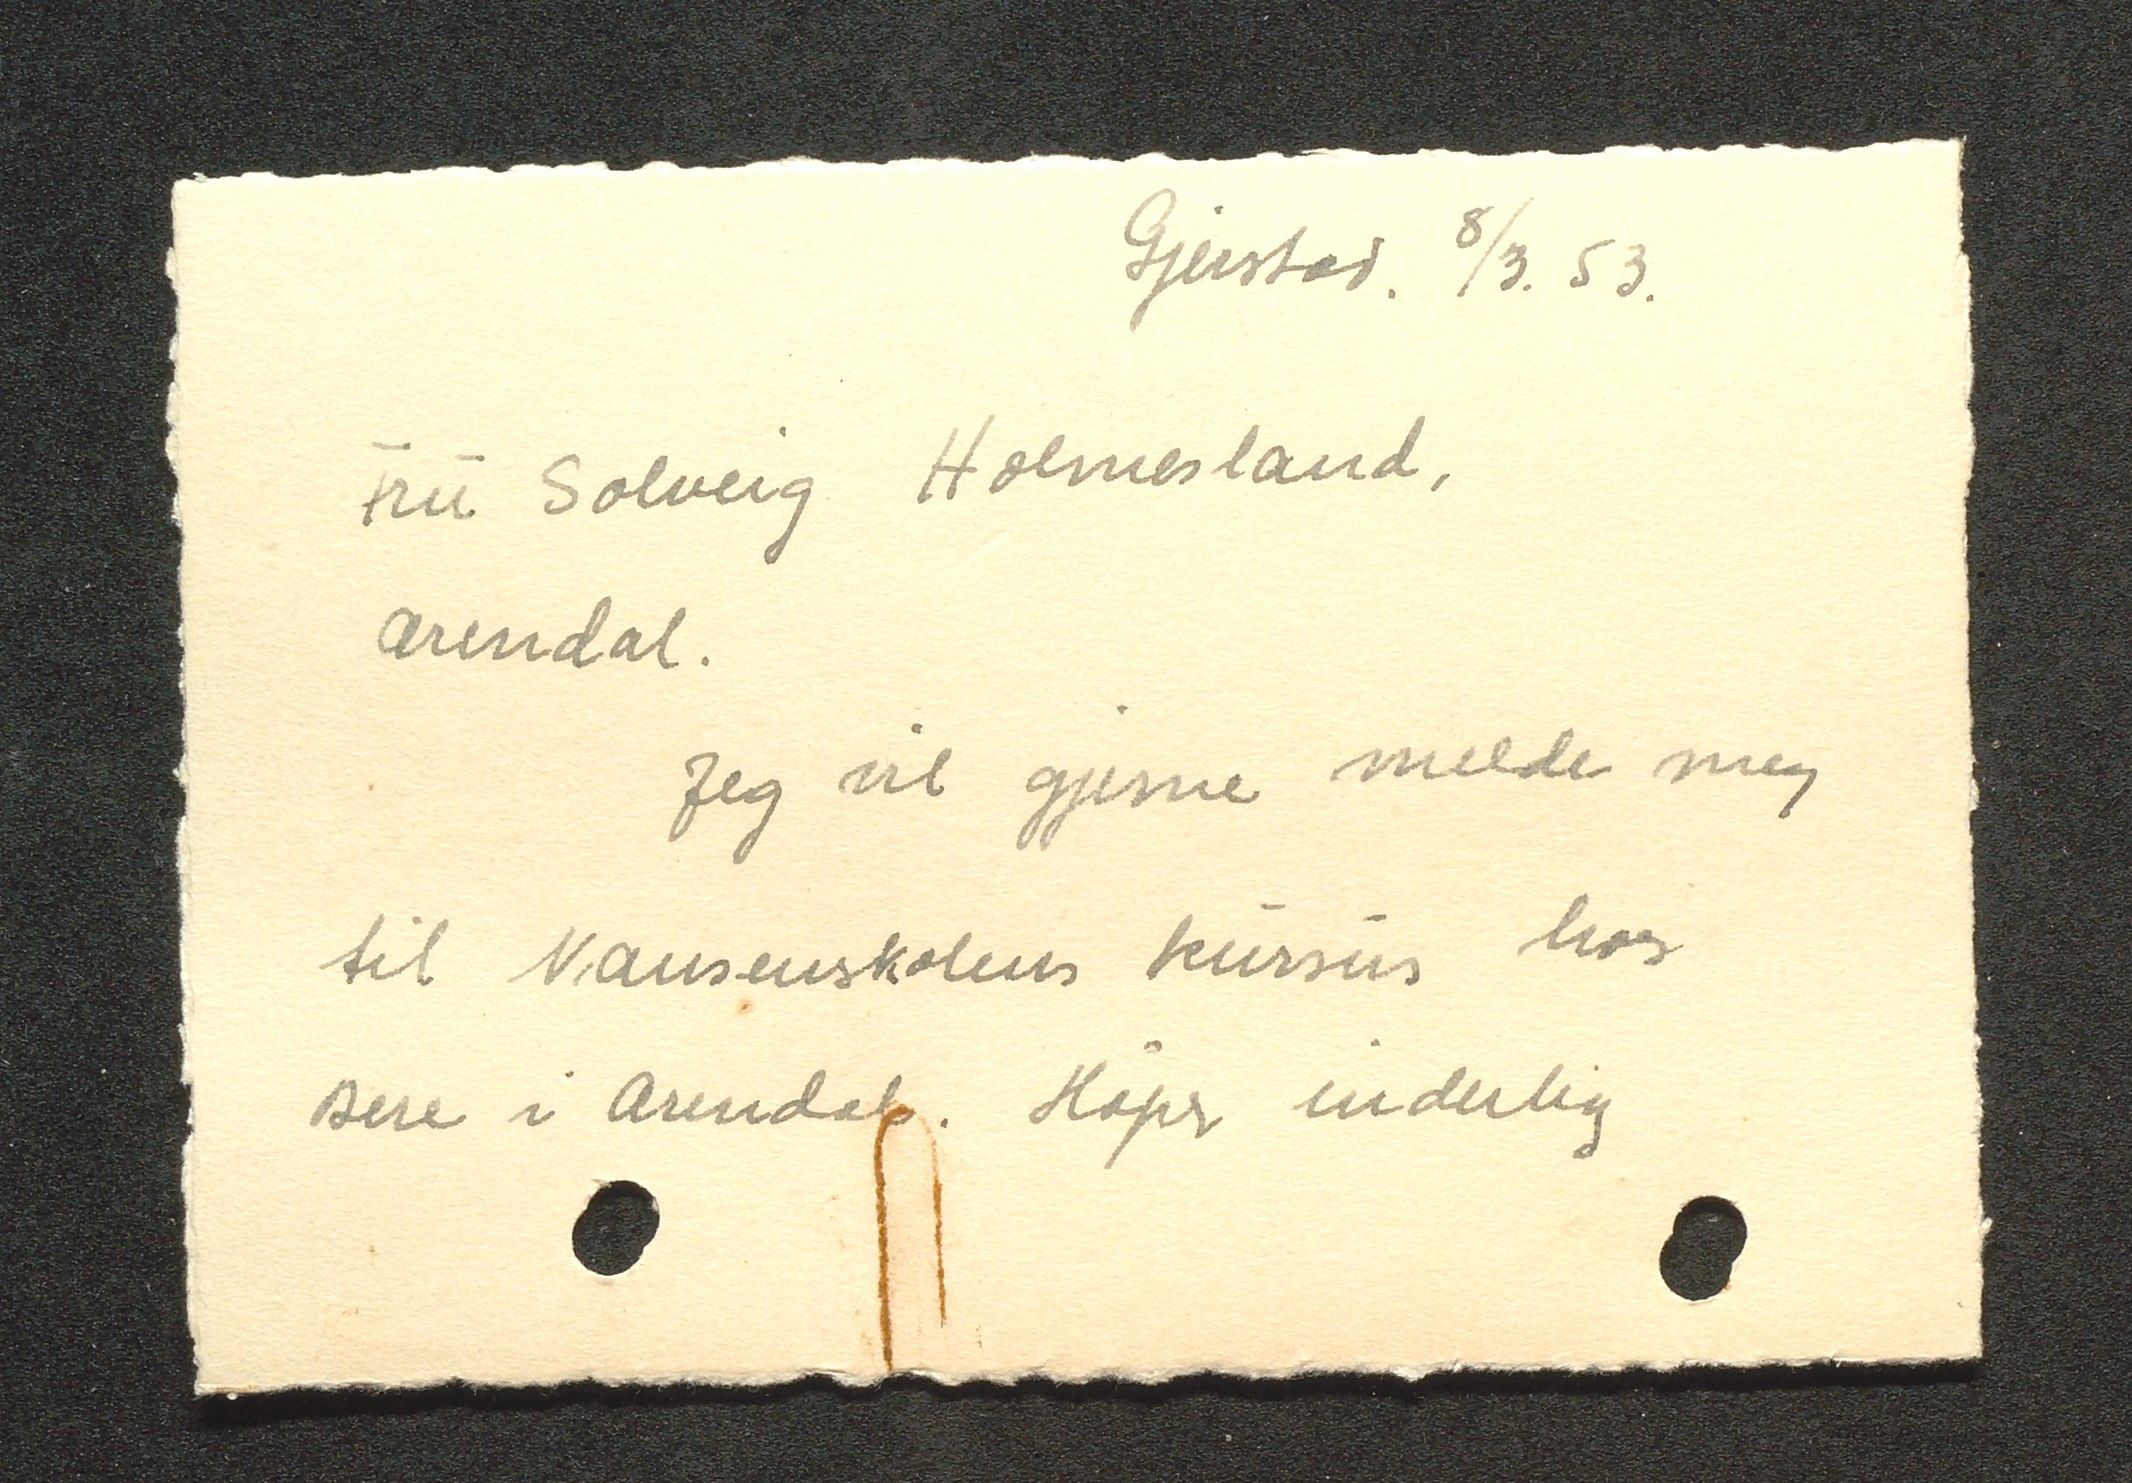 Gjerstad. 8/3. 53.
Fru Solveig Holmesland,
Arendal.
Jeg vil gjerne melde meg
til Nansenskolens kursus hos
Dere i Arendal. Håper inderlig